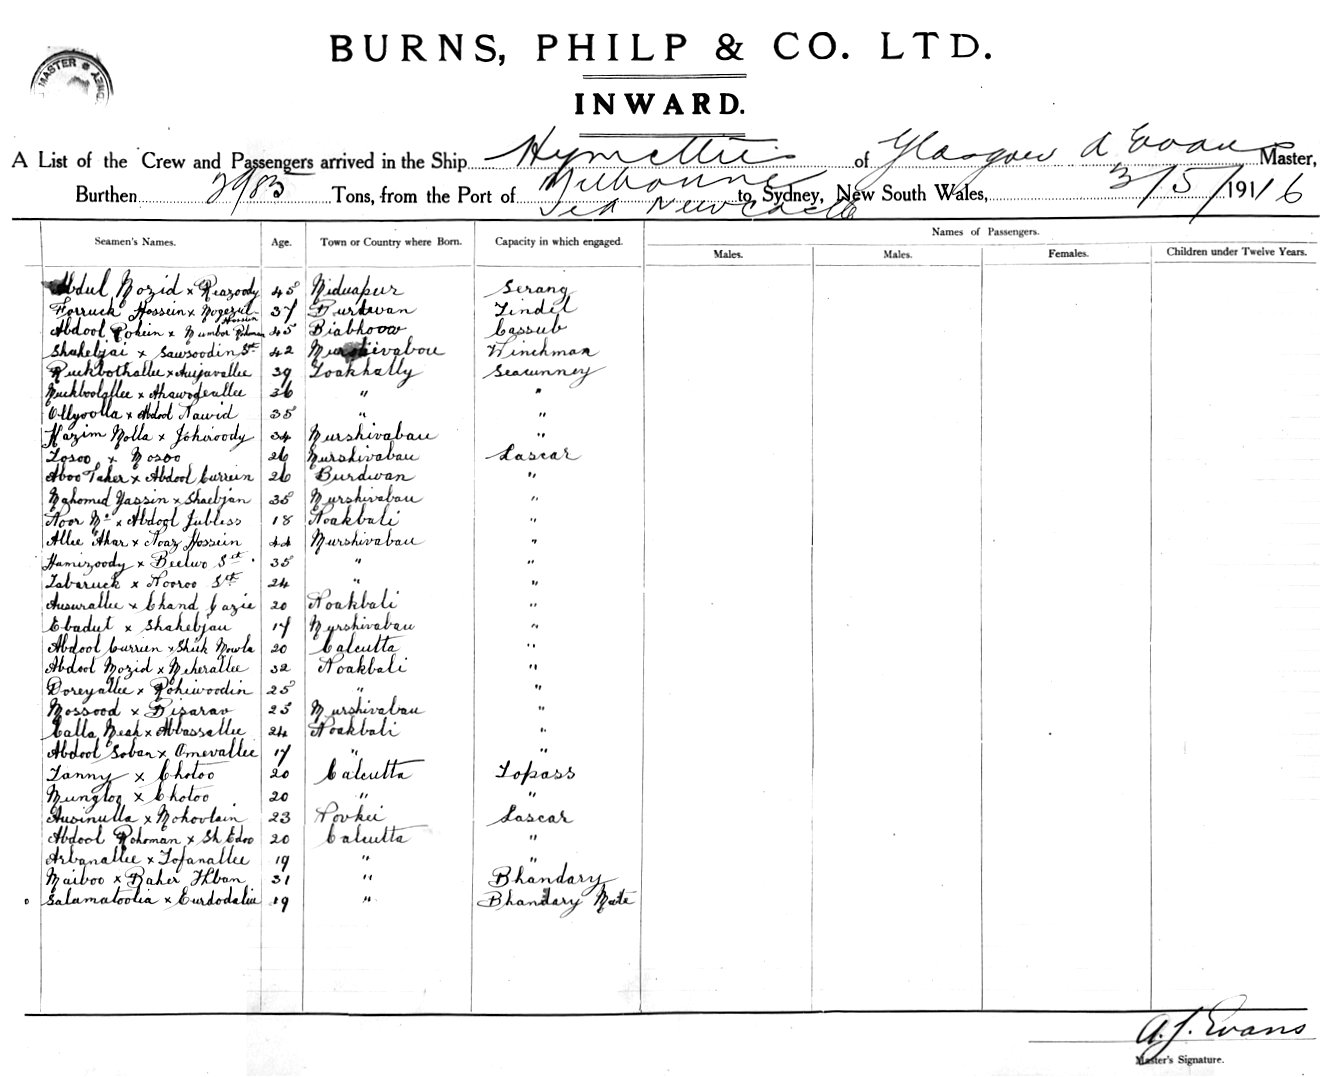 BURNS, PHILP & CO. LTD.
MASTER
INWARD.
A List of the Crew and Passengers arrived in the Ship Hymettus of Glasgow A Evans Master,
Burthen 2985 Tons, from the Port of Melbourne to Sydney, New South Wales, 3/5/1916
via Newcastle
Names of Passengers.
Seamen's Names. Age. Town or Country where Born. Capacity in which engaged. Males. Males. Females. Children under Twelve Years.
Abdul Mozid x Reazoody 45 Midnapur Serang
Forruck Hossein x Mogezul Hossein 37 Burdwan Tindel
Abdool Rohein x Mumbor Rohoman 45 Cassub
Shahebjai x Sawsoodin St 42 Murshivabou Winchman
Ruckbothallee x 39 Noakhally Seacunney
Muckboolallee x 36 " "
Ollyoolla x Abdool Nawid 35 " "
Kazim Molla x Johiroody 34 Murshivabau "
Tosoo x Mosoo 26 Murshivabau Lascar
Aboo Taher x Abdool Curreen 26 Burdwan "
Mahomed Yassin x Shaebjan 35 Murshivabau "
Noor Md x Abdool Jubless 18 Noakbali "
Allee Ahar x Noaz Hossein 44 Murshivabau "
Hamizoody x Beeluo St 35 " "
Tabaruck x Nooroo St 24 " "
Ausurallee x Chand Cazie 20 Noakbali "
Ebadut x Shahebjau 17 Murshivabau "
Abdool Curreen x Shiek Mowla 20 Calcutta "
Abdool Mozid x Meherallee 32 Noakbali "
Doreyallee x Rohiwoodin 25 " "
Mossood x Bisarav 25 Murshivabau "
Calla Meah x Abbassallee 24 Noakbali "
Abdool Soban x Omevallee 17 " "
Fanny x Chotoo 20 Calcutta Topass
Mungloo x Chotoo 20 " "
Ausinulla x Mohovlain 23 Lascar
Abdool Rohoman x Sh Edoo 20 Calcutta "
Arbanallee x Tofanallee 19 " "
Maiboo x Baker Khan 31 " Bhandary
Salamatoolia x 19 " Bhandary Mate
A. J. Evans
Master's Signature.